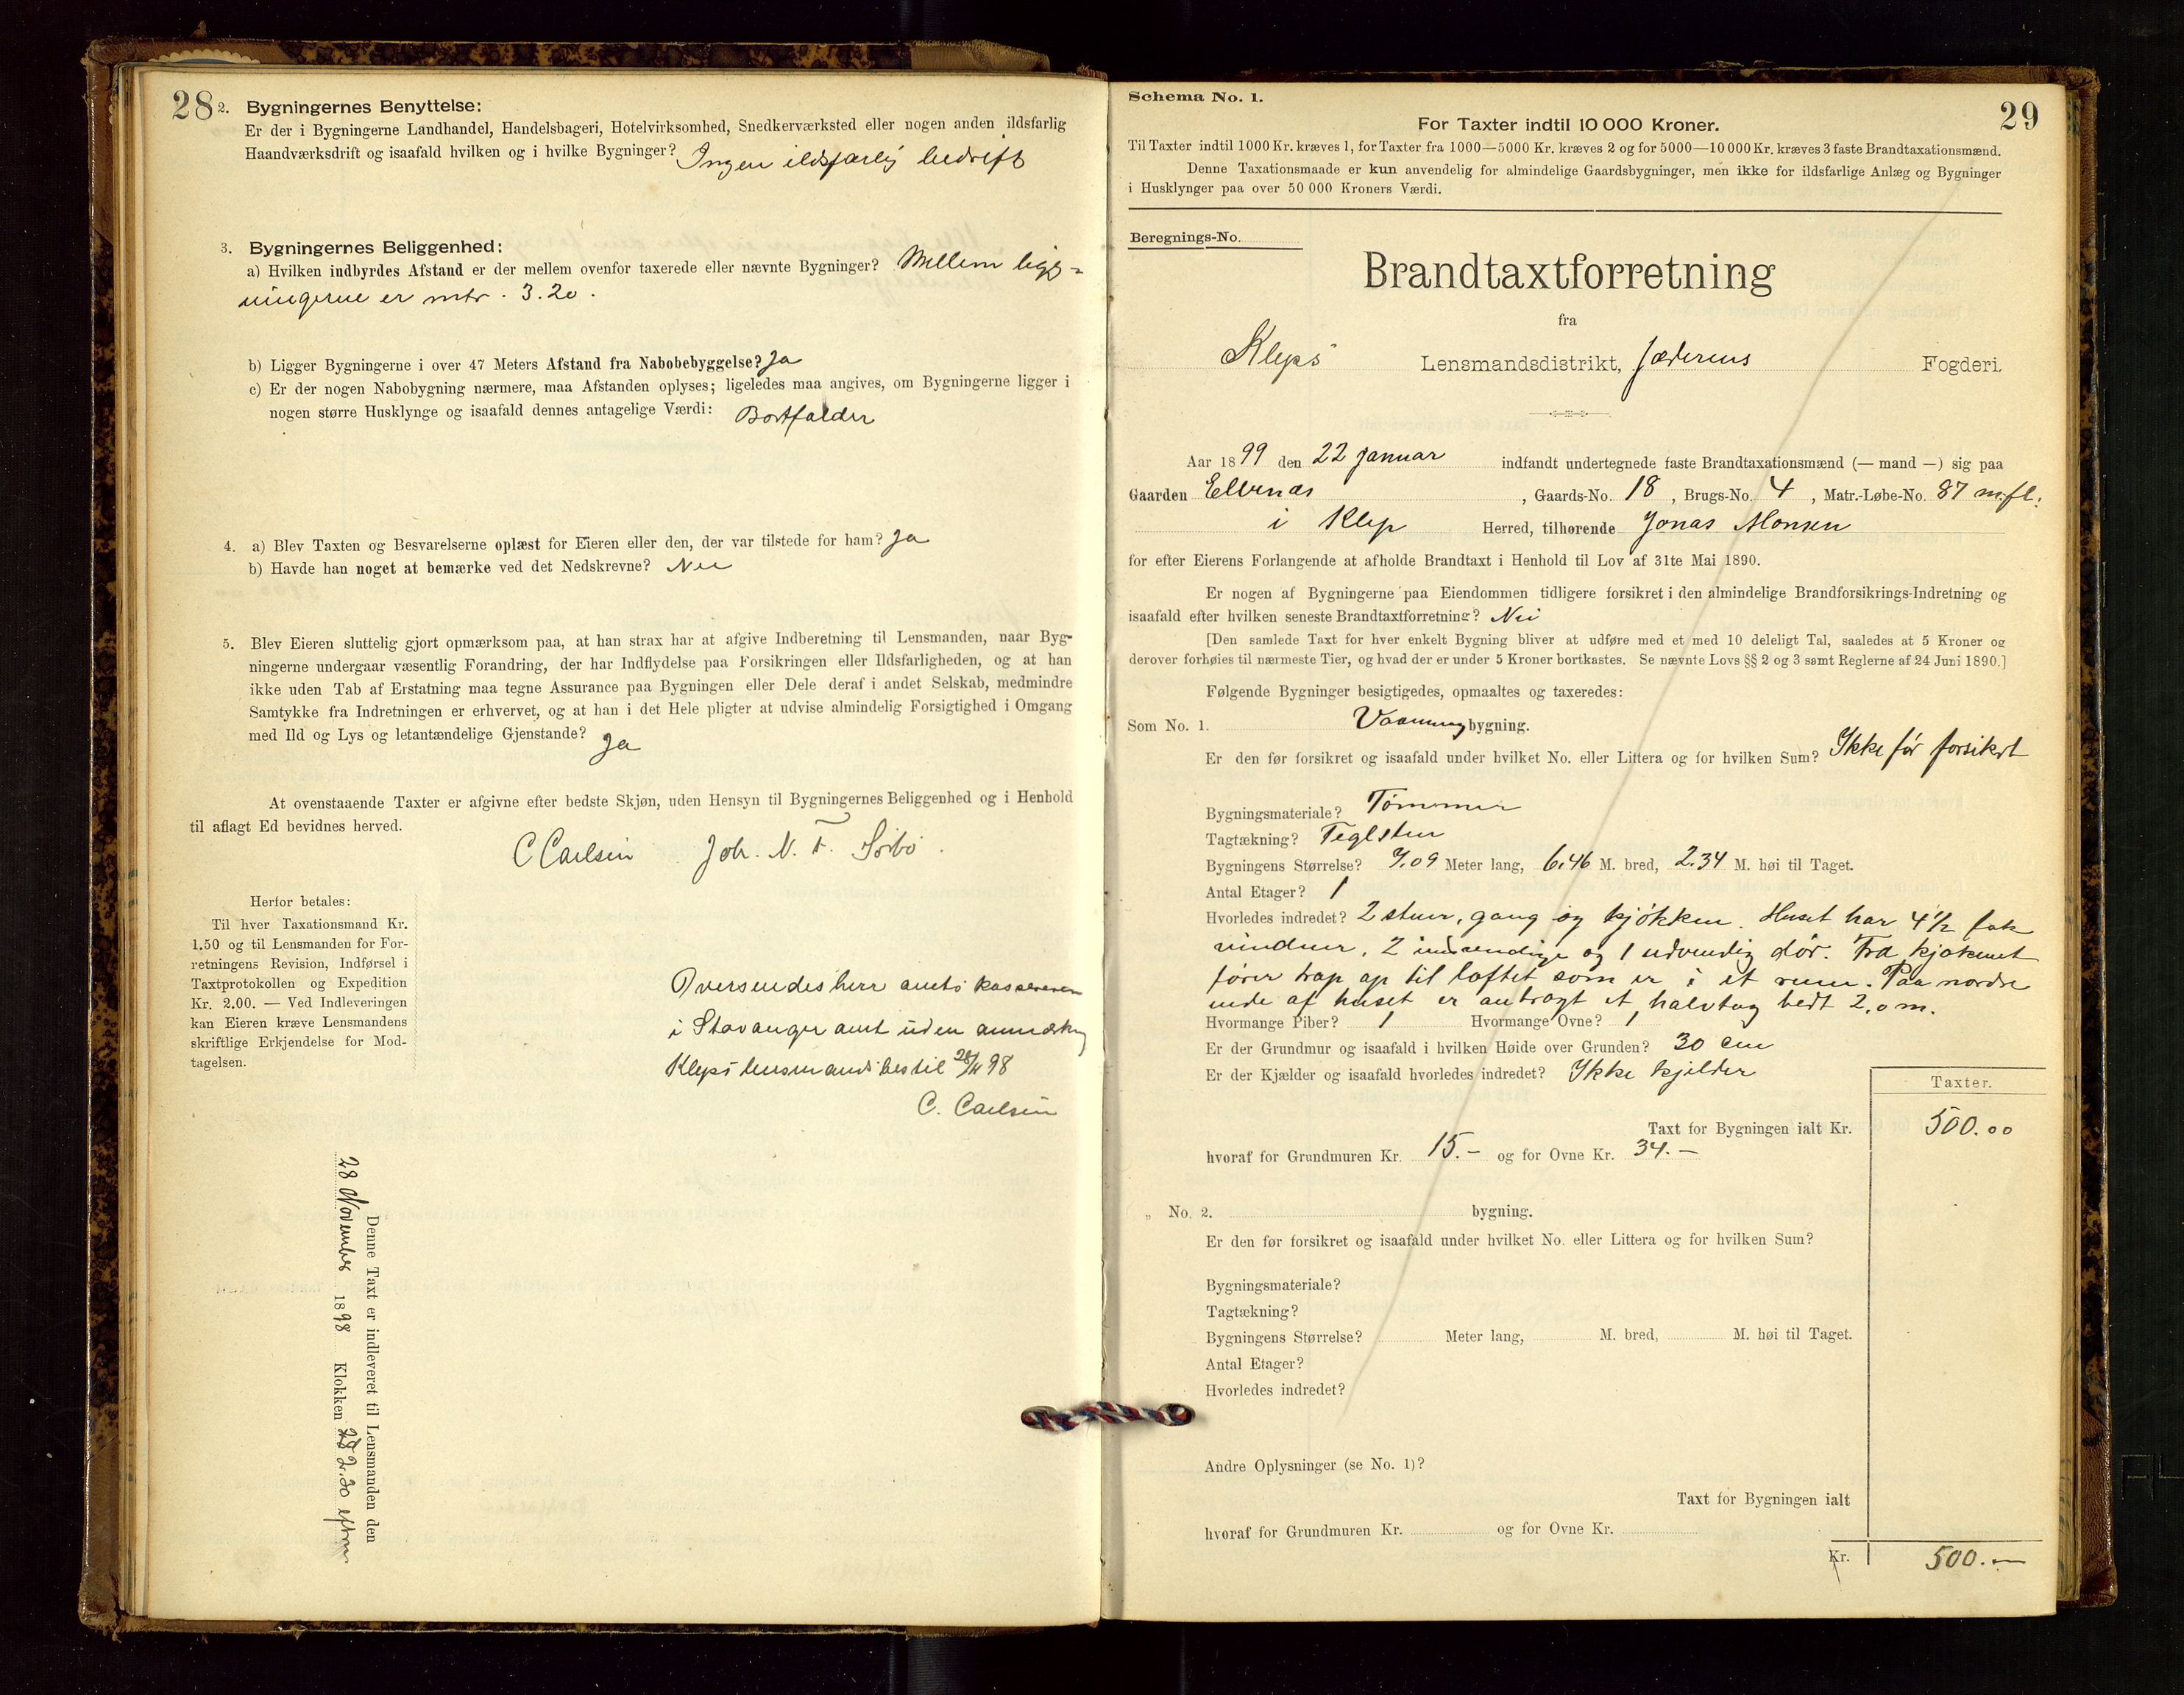 28
2. Bygningernes Benyttelse:
Er der i Bygningerne Landhandel, Handelsbageri, Hotelvirksomhed, Snedkerværksted eller nogen anden ildsfarlig
Haandværksdrift og isaafald hvilken og i hvilke Bygninger? Ingen ildsfarlig bedrift
3. Bygningernes Beliggenhed:
a) Hvilken indbyrdes Afstand er der mellem ovenfor taxerede eller nævnte Bygninger? Mellem
ningerne er mtr. 3.20.
b) Ligger Bygningerne i over 47 Meters Afstand fra Nabobebyggelse? Ja
c) Er der nogen Nabobygning nærmere, maa Afstanden oplyses; ligeledes maa angives, om Bygningerne ligger i
nogen større Husklynge og isaafald dennes antagelige Værdi: Bortfalder
4. a) Blev Taxten og Besvarelserne oplæst for Eieren eller den, der var tilstede for ham? Ja
b) Havde han noget at bemærke ved det Nedskrevne? Nei
5. Blev Eieren sluttelig gjort opmærksom paa, at han strax har at afgive Indberetning til Lensmanden, naar Byg-
ningerne undergaar væsentlig Forandring, der har Indflydelse paa Forsikringen eller Ildsfarligheden, og at han
ikke uden Tab af Erstatning maa tegne Assurance paa Bygningen eller Dele deraf i andet Selskab, medmindre
Samtykke fra Indretningen er erhvervet, og at han i det Hele pligter at udvise almindelig Forsigtighed i Omgang
med Ild og Lys og letantændelige Gjenstande? Ja
At ovenstaaende Taxter er afgivne efter bedste Skjøn, uden Hensyn til Bygningernes Beliggenhed og i Henhold
til aflagt Ed bevidnes herved.
C Carlsen Joh. N. T. Sørbø.
Herfor betales:
Til hver Taxationsmand Kr.
1.50 og til Lensmanden for For-
retningens Revision, Indførsel i
Taxtprotokollen og Expedition
Kr. 2.00. — Ved Indleveringen
kan Eieren kræve Lensmandens
skriftlige Erkjendelse for Mod-
tagelsen.
Oversendes herr amtskassereren
i Stavanger amt uden anmærkn
Kleps lensmandsbestil 28/11 98
C. Carlsen
Denne Taxt er indleveret til Lensmanden den
28 November 1898 Klokken 2.30 eftm
29
Schema No. 1.
For Taxter indtil 10 000 Kroner.
Til Taxter indtil 1000 Kr. kræves 1, for Taxter fra 1000—5000 Kr. kræves 2 og for 5000—10 000 Kr. kræves 3 faste Brandtaxationsmænd.
Denne Taxationsmaade er kun anvendelig for almindelige Gaardsbygninger, men ikke for ildsfarlige Anlæg og Bygninger
i Husklynger paa over 50 000 Kroners Værdi.
Beregnings-No.
Brandtaxtforretning
fra
Kleps Lensmandsdistrikt, Jæderens Fogderi.
Aar 1899 den 22 Januar indfandt undertegnede faste Brandtaxationsmænd (— mand —) sig paa
Gaarden Elvenæs, Gaards-No. 18, Brugs-No. 4, Matr.-Løbe-No. 87 m.fl.
i Klep Herred, tilhørende Jonas Monsen
for efter Eierens Forlangende at afholde Brandtaxt i Henhold til Lov af 31te Mai 1890.
Er nogen af Bygningerne paa Eiendommen tidligere forsikret i den almindelige Brandforsikrings-Indretning og
isaafald efter hvilken seneste Brandtaxtforretning? Nei
[Den samlede Taxt for hver enkelt Bygning bliver at udføre med et med 10 deleligt Tal, saaledes at 5 Kroner og
derover forhøies til nærmeste Tier, og hvad der er under 5 Kroner bortkastes. Se nævnte Lovs §§ 2 og 3 samt Reglerne af 24 Juni 1890.]
Følgende Bygninger besigtigedes, opmaaltes og taxeredes:
Som No. 1. Vaaningbygning.
Er den før forsikret og isaafald under hvilket No. eller Littera og for hvilken Sum? Ikke før forsikrt
Bygningsmateriale? Tømmer
Tagtækning? Teglsten
Bygningens Størrelse? 9.09 Meter lang, 6.46 M. bred, 2.34 M. høi til Taget.
Antal Etager? 1
Hvorledes indredet? 2 stuer, gang og kjøkken. Huset har 4 1/2 fak
vinduer, 2 indvendige og 1 udvendig dør. Fra kjøkenet
fører trap op til loftet som er i et rum. Paa nordre
ende af huset er anbragt et halvtag bedt 2,0 m.
Hvormange Piber? 1 Hvormange Ovne? 1
Er der Grundmur og isaafald i hvilken Høide over Grunden? 30 cm
Er der Kjælder og isaafald hvorledes indredet? Ikke kjelder
Taxter.
Taxt for Bygningen ialt Kr. 500.00
hvoraf for Grundmuren Kr. 15.- og for Ovne Kr. 34.—
„ No. 2. bygning.
Er den før forsikret og isaafald under hvilket No. eller Littera og for hvilken Sum?
Bygningsmateriale?
Tagtækning?
Bygningens Størrelse? Meter lang, M. bred, M. høi til Taget.
Antal Etager?
Hvorledes indredet?
Andre Oplysninger (se No. 1)?
Taxt for Bygningen ialt
hvoraf for Grundmuren Kr. og for Ovne Kr.
Kr. 500.—